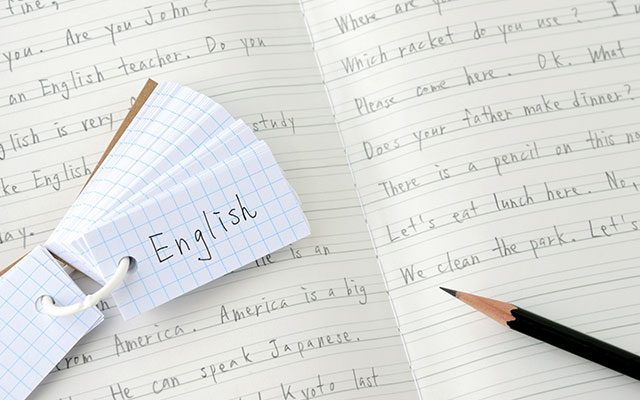 fine,
you. Are you John?
an English teacher. Do you
English is very
study
ke English
ay.
English
He is an
from America. America is a big
He can speak Japanese.
Kyoto last
Where are you
Which racket do you use? I
Please come here. OK. What
Does your father make dinner?
There is a pencil on this
Let's eat lunch here. No,
We clean the park. Let's